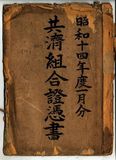 昭和十四年度一月分
共濟組合證憑書